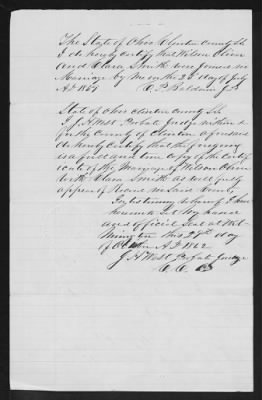 The State of Ohio Clinton County SS
I do hereby certify that Wilson Oliver
and Clara Smith were joined in
Marriage by me on the 2d day of July
AD 18
C. P. Baldwin J.P.
State of Ohio Clinton County SS
I J. H. West Probate Judge within &
for the County of Clinton aforesaid
do hereby certify that the foregoing
is a just and true copy of the Certif
icate of the Marriage of Wilson Oliver
with Clara Smith as will fully
appear of Record in said County
In testimony whereof I have
hereunto set my hand
and official Seal at Wil
mington this 28th day
of AD 1862
J H West Probate Judge
C. C. O